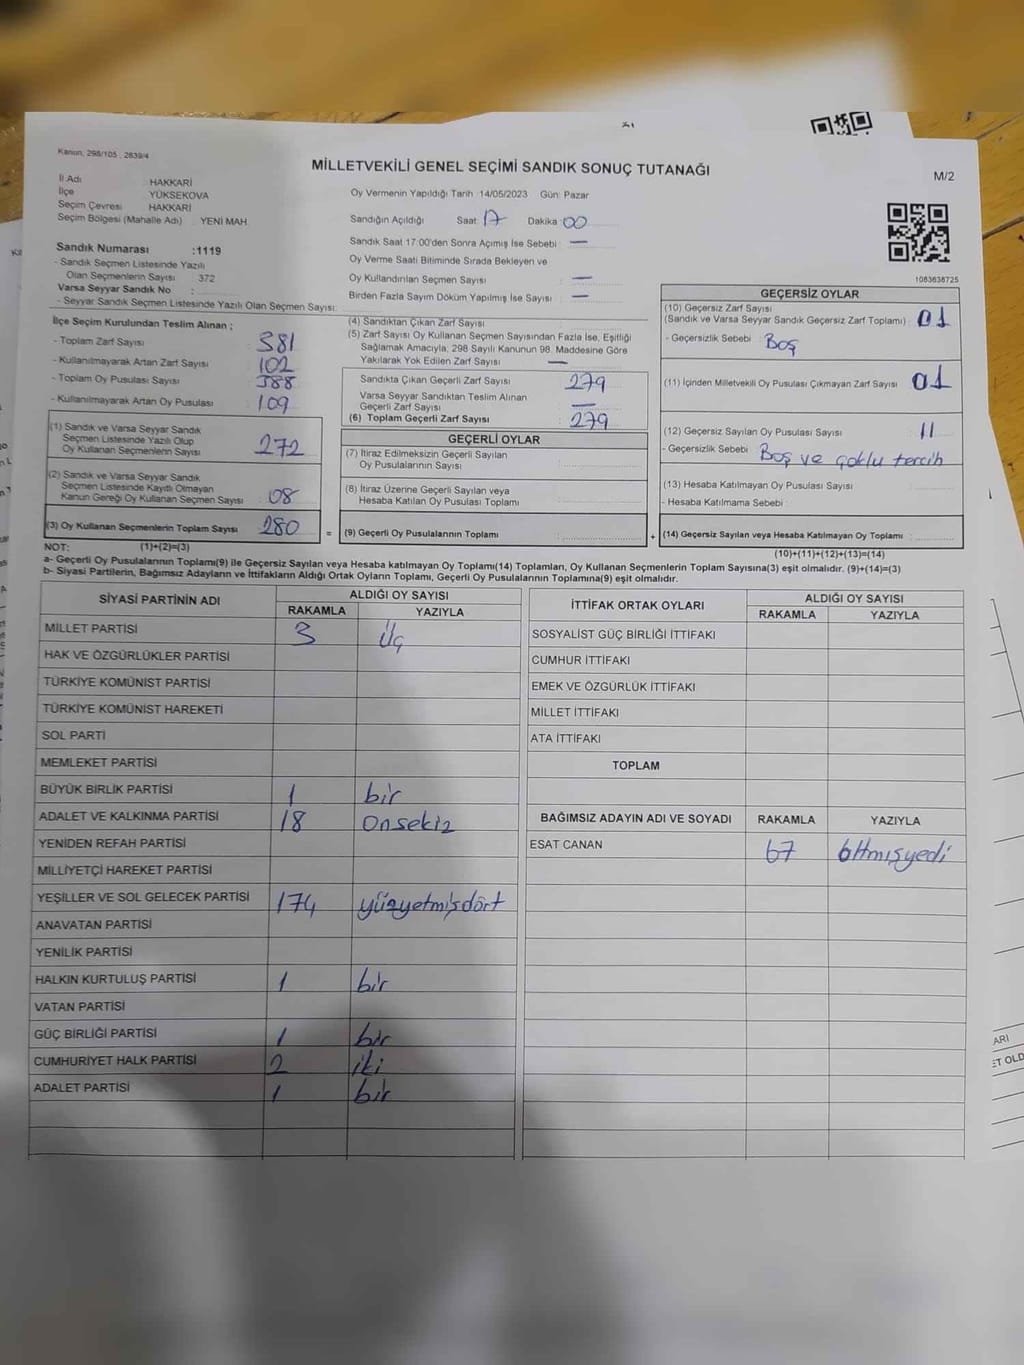 Kanun, 298/105 , 2839/4
MİLLETVEKİLİ GENEL SEÇİMİ SANDIK SONUÇ TUTANAĞI
M/2
İl Adı : HAKKARİ
İlçe : YÜKSEKOVA
Seçim Çevresi : HAKKARİ
Seçim Bölgesi (Mahalle Adı) : YENİ MAH.
Oy Vermenin Yapıldığı Tarih :14/05/2023 Gün: Pazar
Sandığın Açıldığı Saat 17 Dakika 00
Sandık Saat 17:00'den Sonra Açımış İse Sebebi : —
Oy Verme Saati Bitiminde Sırada Bekleyen ve
Oy Kullandırılan Seçmen Sayısı : —
Birden Fazla Sayım Döküm Yapılmış İse Sayısı : —
Sandık Numarası :1119
- Sandık Seçmen Listesinde Yazılı
Olan Seçmenlerin Sayısı : 372
Varsa Seyyar Sandık No :
- Seyyar Sandık Seçmen Listesinde Yazılı Olan Seçmen Sayısı:
1083636725
İlçe Seçim Kurulundan Teslim Alınan ;
- Toplam Zarf Sayısı : 381
- Kullanılmayarak Artan Zarf Sayısı : 102
- Toplam Oy Pusulası Sayısı : 388
- Kullanılmayarak Artan Oy Pusulası : 109
(1) Sandık ve Varsa Seyyar Sandık
Seçmen Listesinde Yazılı Olup
Oy Kullanan Seçmenlerin Sayısı : 272
(2) Sandık ve Varsa Seyyar Sandık
Seçmen Listesinde Kayıtlı Olmayan
Kanun Gereği Oy Kullanan Seçmen Sayısı : 08
(3) Oy Kullanan Seçmenlerin Toplam Sayısı : 280 =
(1)+(2)=(3)
(4) Sandıktan Çıkan Zarf Sayısı :
(5) Zarf Sayısı Oy Kullanan Seçmen Sayısından Fazla İse, Eşitliği
Sağlamak Amacıyla, 298 Sayılı Kanunun 98. Maddesine Göre
Yakılarak Yok Edilen Zarf Sayısı : —
Sandıkta Çıkan Geçerli Zarf Sayısı : 279
Varsa Seyyar Sandıktan Teslim Alınan
Geçerli Zarf Sayısı : —
(6) Toplam Geçerli Zarf Sayısı : 279
GEÇERLİ OYLAR
(7) İtiraz Edilmeksizin Geçerli Sayılan
Oy Pusulalarının Sayısı :
(8) İtiraz Üzerine Geçerli Sayılan veya
Hesaba Katılan Oy Pusulası Toplamı :
(9) Geçerli Oy Pusulalarının Toplamı : +
GEÇERSİZ OYLAR
(10) Geçersiz Zarf Sayısı
(Sandık ve Varsa Seyyar Sandık Geçersiz Zarf Toplamı) : 01
- Geçersizlik Sebebi : Boş
(11) İçinden Milletvekili Oy Pusulası Çıkmayan Zarf Sayısı : 01
(12) Geçersiz Sayılan Oy Pusulası Sayısı : 11
- Geçersizlik Sebebi : Boş ve çoklu tercih
(13) Hesaba Katılmayan Oy Pusulası Sayısı :
- Hesaba Katılmama Sebebi :
(14) Geçersiz Sayılan veya Hesaba Katılmayan Oy Toplamı :
(10)+(11)+(12)+(13)=(14)
NOT:
a- Geçerli Oy Pusulalarının Toplamı(9) ile Geçersiz Sayılan veya Hesaba katılmayan Oy Toplamı(14) Toplamları, Oy Kullanan Seçmenlerin Toplam Sayısına(3) eşit olmalıdır. (9)+(14)=(3)
b- Siyasi Partilerin, Bağımsız Adayların ve İttifakların Aldığı Ortak Oyların Toplamı, Geçerli Oy Pusulalarının Toplamına(9) eşit olmalıdır.
SİYASİ PARTİNİN ADI ALDIĞI OY SAYISI
RAKAMLA YAZIYLA
MİLLET PARTİSİ 3 Üç
HAK VE ÖZGÜRLÜKLER PARTİSİ
TÜRKİYE KOMÜNİST PARTİSİ
TÜRKİYE KOMÜNİST HAREKETİ
SOL PARTİ
MEMLEKET PARTİSİ
BÜYÜK BİRLİK PARTİSİ 1 bir
ADALET VE KALKINMA PARTİSİ 18 Onsekiz
YENİDEN REFAH PARTİSİ
MİLLİYETÇİ HAREKET PARTİSİ
YEŞİLLER VE SOL GELECEK PARTİSİ 174 yüzyetmişdört
ANAVATAN PARTİSİ
YENİLİK PARTİSİ
HALKIN KURTULUŞ PARTİSİ 1 bir
VATAN PARTİSİ
GÜÇ BİRLİĞİ PARTİSİ 1 bir
CUMHURİYET HALK PARTİSİ 2 iki
ADALET PARTİSİ 1 bir
İTTİFAK ORTAK OYLARI ALDIĞI OY SAYISI
RAKAMLA YAZIYLA
SOSYALİST GÜÇ BİRLİĞİ İTTİFAKI
CUMHUR İTTİFAKI
EMEK VE ÖZGÜRLÜK İTTİFAKI
MİLLET İTTİFAKI
ATA İTTİFAKI
TOPLAM
BAĞIMSIZ ADAYIN ADI VE SOYADI RAKAMLA YAZIYLA
ESAT CANAN 67 Altmışyedi
ARI
ET OLD